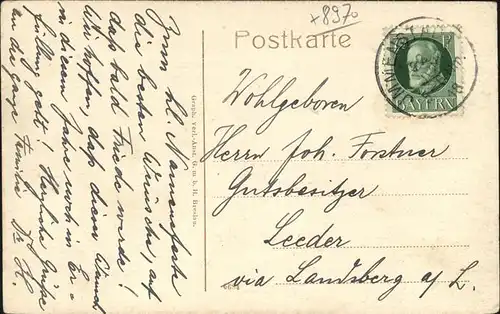 x8970
Postkarte
BAYERN
Zum hl. Namensfeste
die besten Wünsche, auf
daß bald Friede werde!
Wir hoffen, daß dieser Wunsch
in diesem Jahre noch in Er-
füllung geht! Herzliche Grüße
an die ganze Familie
Graph. Verl.-Anst. G. m. b. H. Breslau.
Wohlgeboren
Herrn Joh. Forstner
Gutsbesitzer
Leeder
via Landsberg a. L.